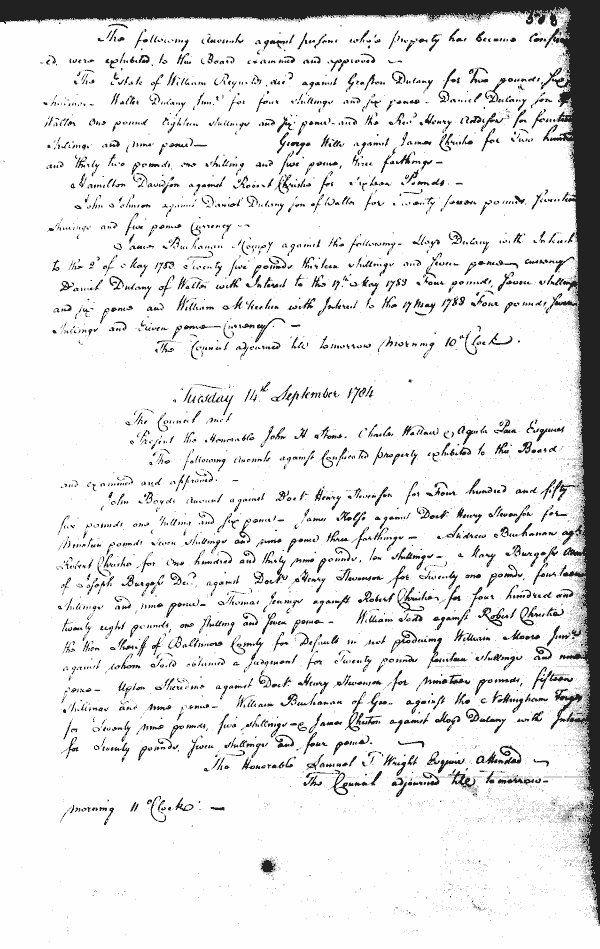 The following Accounts against persons who's property has become
ed, were exhibited to this Board examined and approved
The Estate of William Reynolds, decd against Grafton Dulany for two pounds,
Shillings - Walter Dulany Junr for four shillings and six pence - Daniel Dulany son
Walter One pound Eighteen shillings and six pence and the Revd Henry Addison for fourteen
Shillings and nine pence - George Wells against James Christie for Two hund
and thirty two pounds, one shilling and five pence, three farthings -
Hamilton Davidson against Robert Christie for Pounds. -
John Johnson against Daniel Dulany son of Walter for Twenty seven pounds, Seventeen
Shillings and five pence Currency -
James Buchanan against the following - Lloyd Dulany with
to the 2d of May 1783 Twenty five pounds thirteen shillings and seven pence currency
Daniel Dulany of Walter with Interest to the 17th May 1783 Four pounds, Seven shillings
and six pence and William with Interest to the 17 May 1783 Four pounds,
Shillings and Eleven pence Currency -
The Council adjourned till tomorrow Morning 10 oClock.
Tuesday 14th September 1784
The Council met
Present the Honorable John H Stone. Charles Wallace & Aquila Paca Esquires
The following Accounts against Confiscated Property exhibited to this Board
and examined and approved. -
John Boyds account against Doctr Henry Stevenson for Four hundred and fifty
five pounds, one shilling and six pence - James Kelso against Doctr Henry Stevenson for
Nineteen pounds Seven Shillings and nine pence three farthings - Andrew Buchanan agt
Robert Christie for One hundred and thirty nine pounds, ten shillings - Mary Burgess
of Joseph Burgess Decd. against Doctr Henry Stevenson for Twenty one pounds, fourteen
shillings and nine pence - Thomas Jenings against Robert Christie for four hundred and
twenty eight pounds, one shilling and seven pence - William Todd against Robert Christie
the then Sheriff of Baltimore County for Default in not producing William Moore Junr
against whom Todd obtained a Judgment for Twenty pounds fourteen shillings and nine
pence - Upton Sheredine against Doctr Henry Stevenson for nineteen pounds, fifteen
shillings and nine pence - William Buchanan of Geo. against the Nottingham Forges
for Seventy nine pounds, five shillings & James Clerton against Lloyd Dulany with
for Twenty pounds, Seven shillings and four pence.
The Honorable Samuel T Wright Esquire attended
The Council adjourned till tomorrow -
morning 11 oClock. -